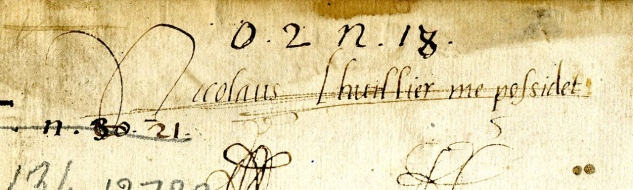 O. 2 n. 18.
Nicolaus Lhuillier me possidet
n. 30. 21.